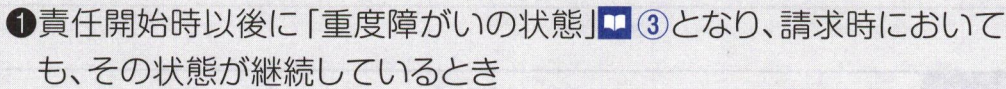 ❶責任開始時以後に「重度障がいの状態」③となり、請求時において
も、その状態が継続しているとき